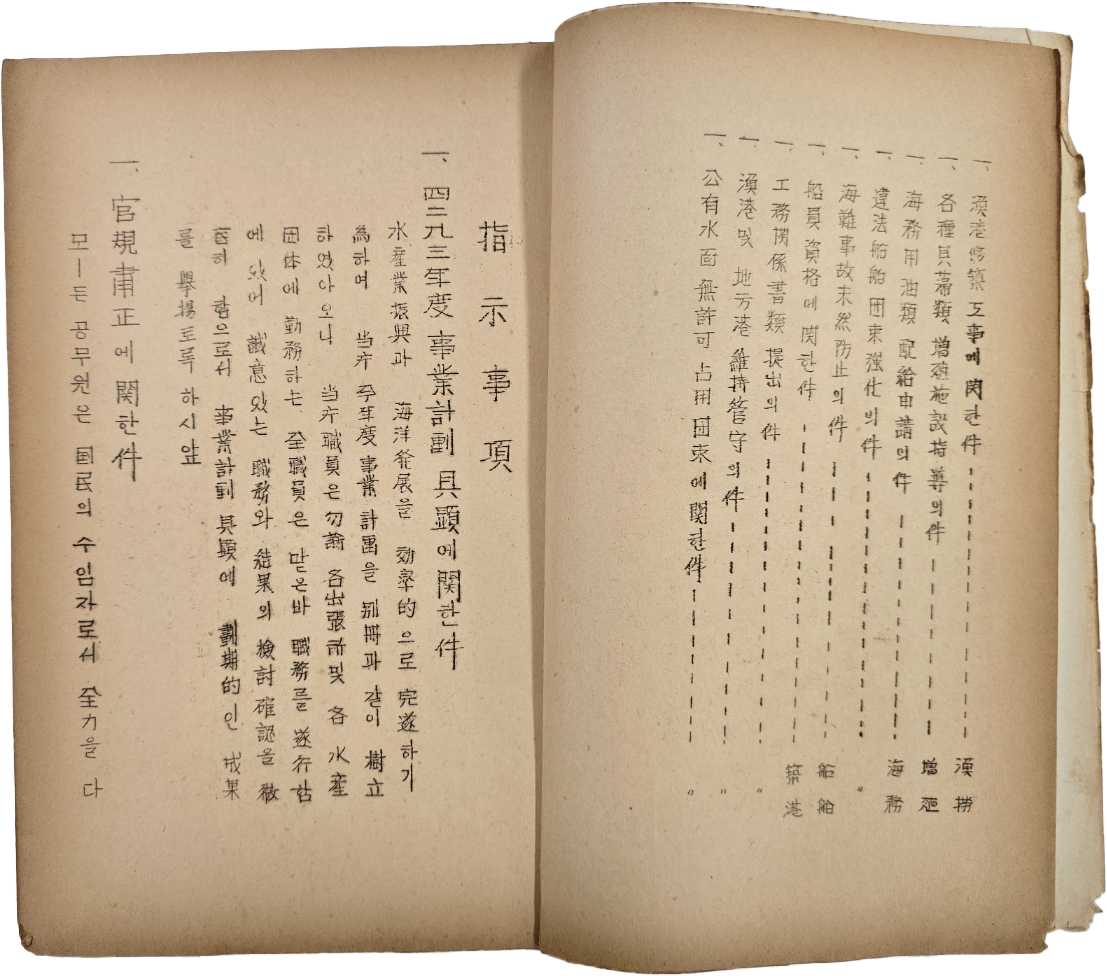 一、漁港修築 工事에 関한 件 漁撈
一、各種具藻類 增殖施設 指導의 件 增殖
一、海務用 油類 配給申請의 件 海務
一、違法船舶 団束 強化의 件 〃
一、海難事故 未然防止의 件 船舶
一、船員資格에 関한 件
一、工務関係書類 提出의 件 築港
一、漁港 및 地方港 維持管守의 件 〃
一、公有水面 無許可 占用 団束에 関한 件 〃
指示事項
一、四二九三年度 事業計劃 具顕에 関한 件
水産業振興과 海洋発展을 効率的으로 完遂하기
為하여 当庁 今年度 事業計画을 別冊과 같이 樹立
하였아오니 当庁職員은 勿論 各出張所 및 各 水産
団体에 勤務하는 全職員은 맏은바 職務를 遂行함
에 있어 誠意있는 職務와 結果의 検討確認을 徹
底히 함으로서 事業計劃 具顕에 劃期的인 成果
를 擧揚토록 하시압
一、官規肅正에 関한 件
모ー든 공무원은 国民의 수임자로서 全力을 다